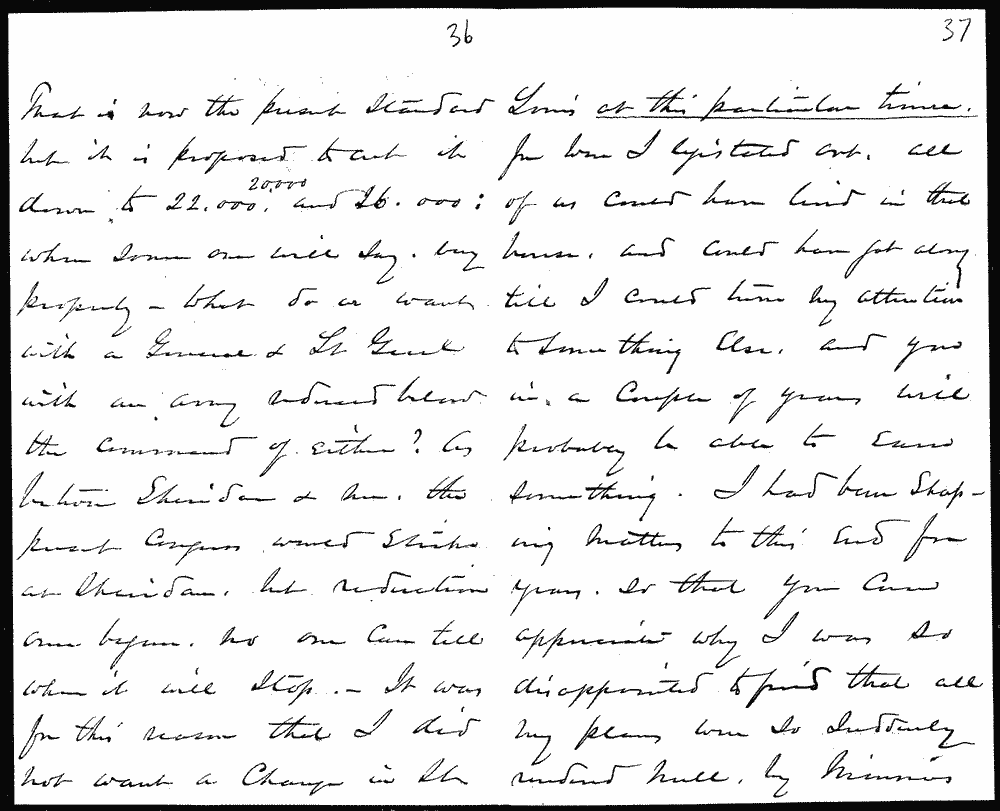 36
That is now the present Standard
but it is proposed to cut it
down to 22.000. 20,000 and 26.000:
when some one will say. very
properly - What do we want
with a General & Lt Genl
with an army reduced below
the command of either? As
between Sheridan & me. the
present Congress would strike
at Sheridan. but reduction
once begun. no one can tell
when it will stop. - It was
for this reason that I did
not want a Change in St
37
Louis at this particular time.
for were I legislated out. all
of us could have lived in that
house. and could have got along
till I could turn my attention
to something Else. and you
in a Couple of years will
probably be able to Earn
something. I had been Shap-
ing matters to this End for
years. so that you can
appreciate why I was so
disappointed to find that all
my plans were so suddenly
rendered null. by Minnies